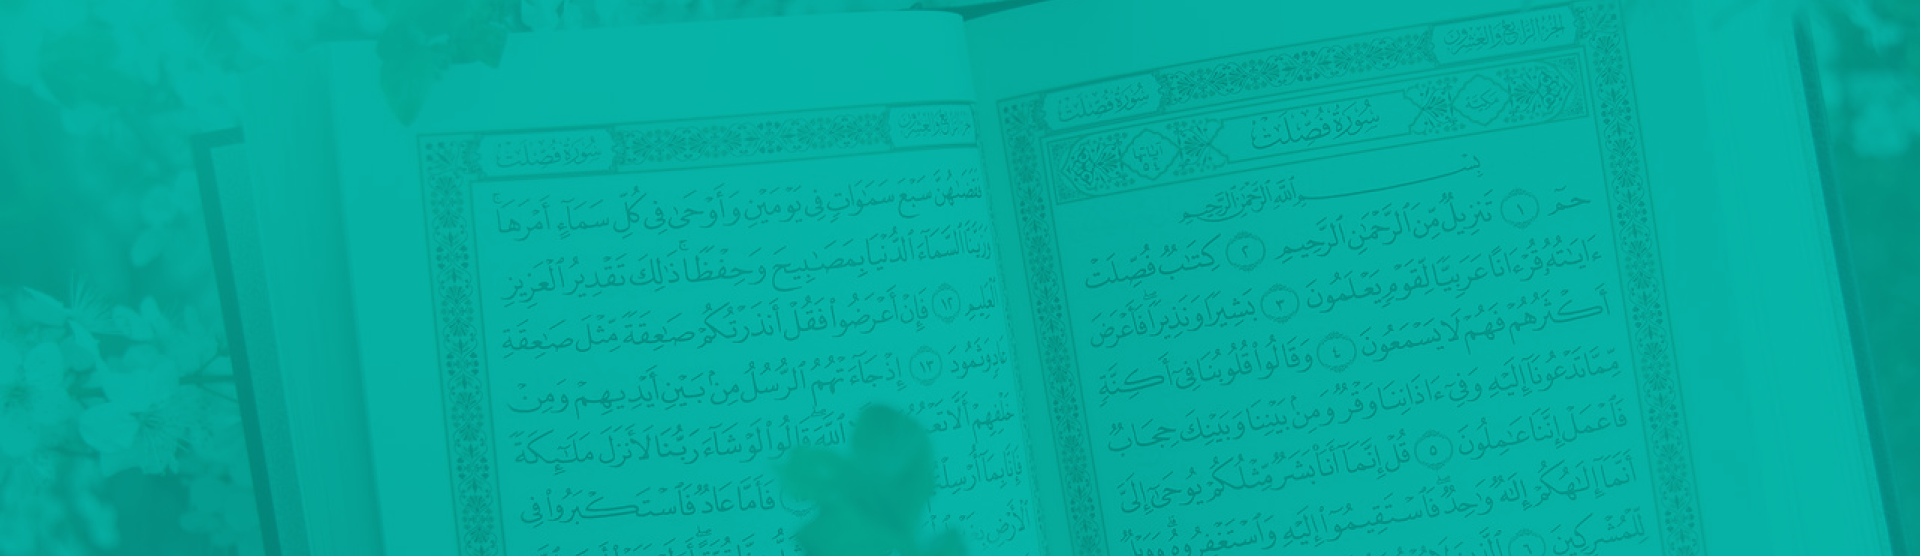 الجزء الرابع والعشرون
سورة فصلت
مكية
سورة فصلت
آياتها
بسم الله الرحمن الرحيم
حمٓ ١ تَنزِيلٌ مِّنَ ٱلرَّحْمَٰنِ ٱلرَّحِيمِ ٢ كِتَٰبٌ فُصِّلَتْ
ءَايَٰتُهُۥ قُرْءَانًا عَرَبِيًّا لِّقَوْمٍ يَعْلَمُونَ ٣ بَشِيرًا وَنَذِيرًا فَأَعْرَضَ
أَكْثَرُهُمْ فَهُمْ لَا يَسْمَعُونَ ٤ وَقَالُوا۟ قُلُوبُنَا فِىٓ أَكِنَّةٍ
مِّمَّا تَدْعُونَآ إِلَيْهِ وَفِىٓ ءَاذَانِنَا وَقْرٌ وَمِنۢ بَيْنِنَا وَبَيْنِكَ حِجَابٌ
فَٱعْمَلْ إِنَّنَا عَٰمِلُونَ ٥ قُلْ إِنَّمَآ أَنَا۠ بَشَرٌ مِّثْلُكُمْ يُوحَىٰٓ إِلَىَّ
أَنَّمَآ إِلَٰهُكُمْ إِلَٰهٌ وَٰحِدٌ فَٱسْتَقِيمُوٓا۟ إِلَيْهِ وَٱسْتَغْفِرُوهُ وَوَيْلٌ
لِّلْمُشْرِكِينَ ٦
سورة فصلت
فَقَضَىٰهُنَّ سَبْعَ سَمَٰوَاتٍ فِى يَوْمَيْنِ وَأَوْحَىٰ فِى كُلِّ سَمَآءٍ أَمْرَهَا
وَزَيَّنَّا ٱلسَّمَآءَ ٱلدُّنْيَا بِمَصَٰبِيحَ وَحِفْظًا ذَٰلِكَ تَقْدِيرُ ٱلْعَزِيزِ
ٱلْعَلِيمِ ١٢ فَإِنْ أَعْرَضُوا۟ فَقُلْ أَنذَرْتُكُمْ صَٰعِقَةً مِّثْلَ صَٰعِقَةِ
عَادٍ وَثَمُودَ ١٣ إِذْ جَآءَتْهُمُ ٱلرُّسُلُ مِنۢ بَيْنِ أَيْدِيهِمْ وَمِنْ
خَلْفِهِمْ أَلَّا ٱللَّهَ قَالُوا۟ لَوْ شَآءَ رَبُّنَا لَأَنزَلَ مَلَٰٓئِكَةً
فَإِنَّا بِمَآ فَأَمَّا عَادٌ فَٱسْتَكْبَرُوا۟ فِى
ٱلْأَرْضِ